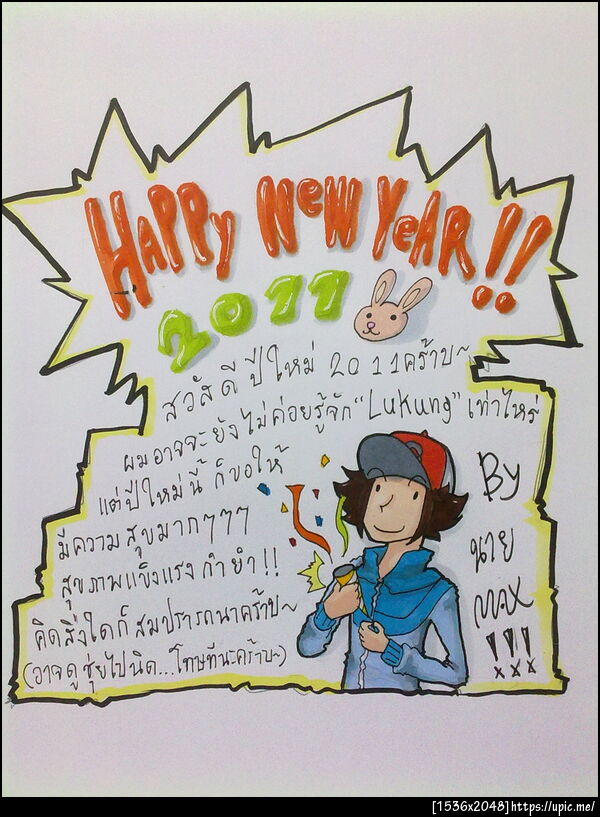 HaPPy NeW YeAR!!
2011
สวัสดี ปีใหม่ 2011คร้าบ~
ผมอาจจะยังไม่ค่อยรู้จัก "Lukung" เท่าไหร่
แต่ปีใหม่นี้ ก็ขอให้
มีความสุขมากๆๆๆ
สุขภาพแข็งแรง กำยำ!!
คิดสิ่งใดก็สมปรารถนาคร้าบ~
(อาจดูชุ่ยไปนิด...โทษทีนะคร้าบ~)
By
นาย
max
!!!
[1536x2048]https://upic.me/